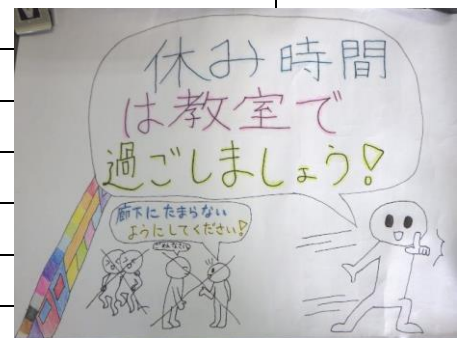 休み時間
は教室で
過ごしましょう!
廊下にたまらない
ようにしてください!